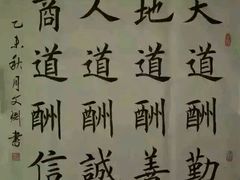 天道酬勤
地道酬善
人道酬誠
商道酬信
乙未秋月文
書